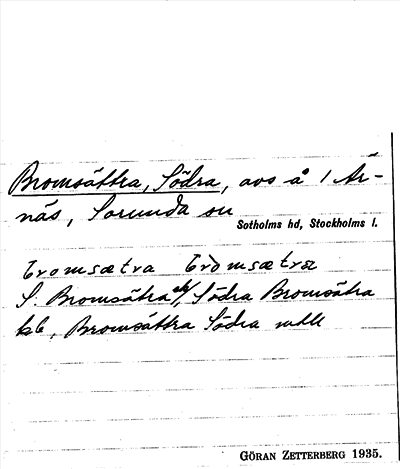 Bromsättra, Södra, avs å 1 År-
näs, Sorunda sn
Sotholms hd, Stockholms l.
bromsætra bròmsætra
S. Bromsätra ek/, Södra Bromsätra
kb, Bromsättra Södra mtlk
GÖRAN ZETTERBERG 1935.